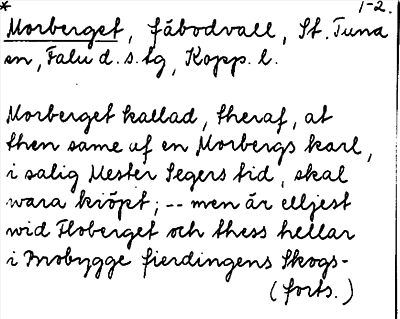 * 1-2.
Morberget, fäbodvall, St. Tuna
sn, Falu d.s.lg, Kopp. l.
Morberget kallad, theraf, at
then same af en Morbergs karl,
i salig Mester Segers tid, skal
wara kiöpt; -- men är elljest
wid Floberget och thess hellar
i Brobygge fierdingens Skogs-
(forts.)